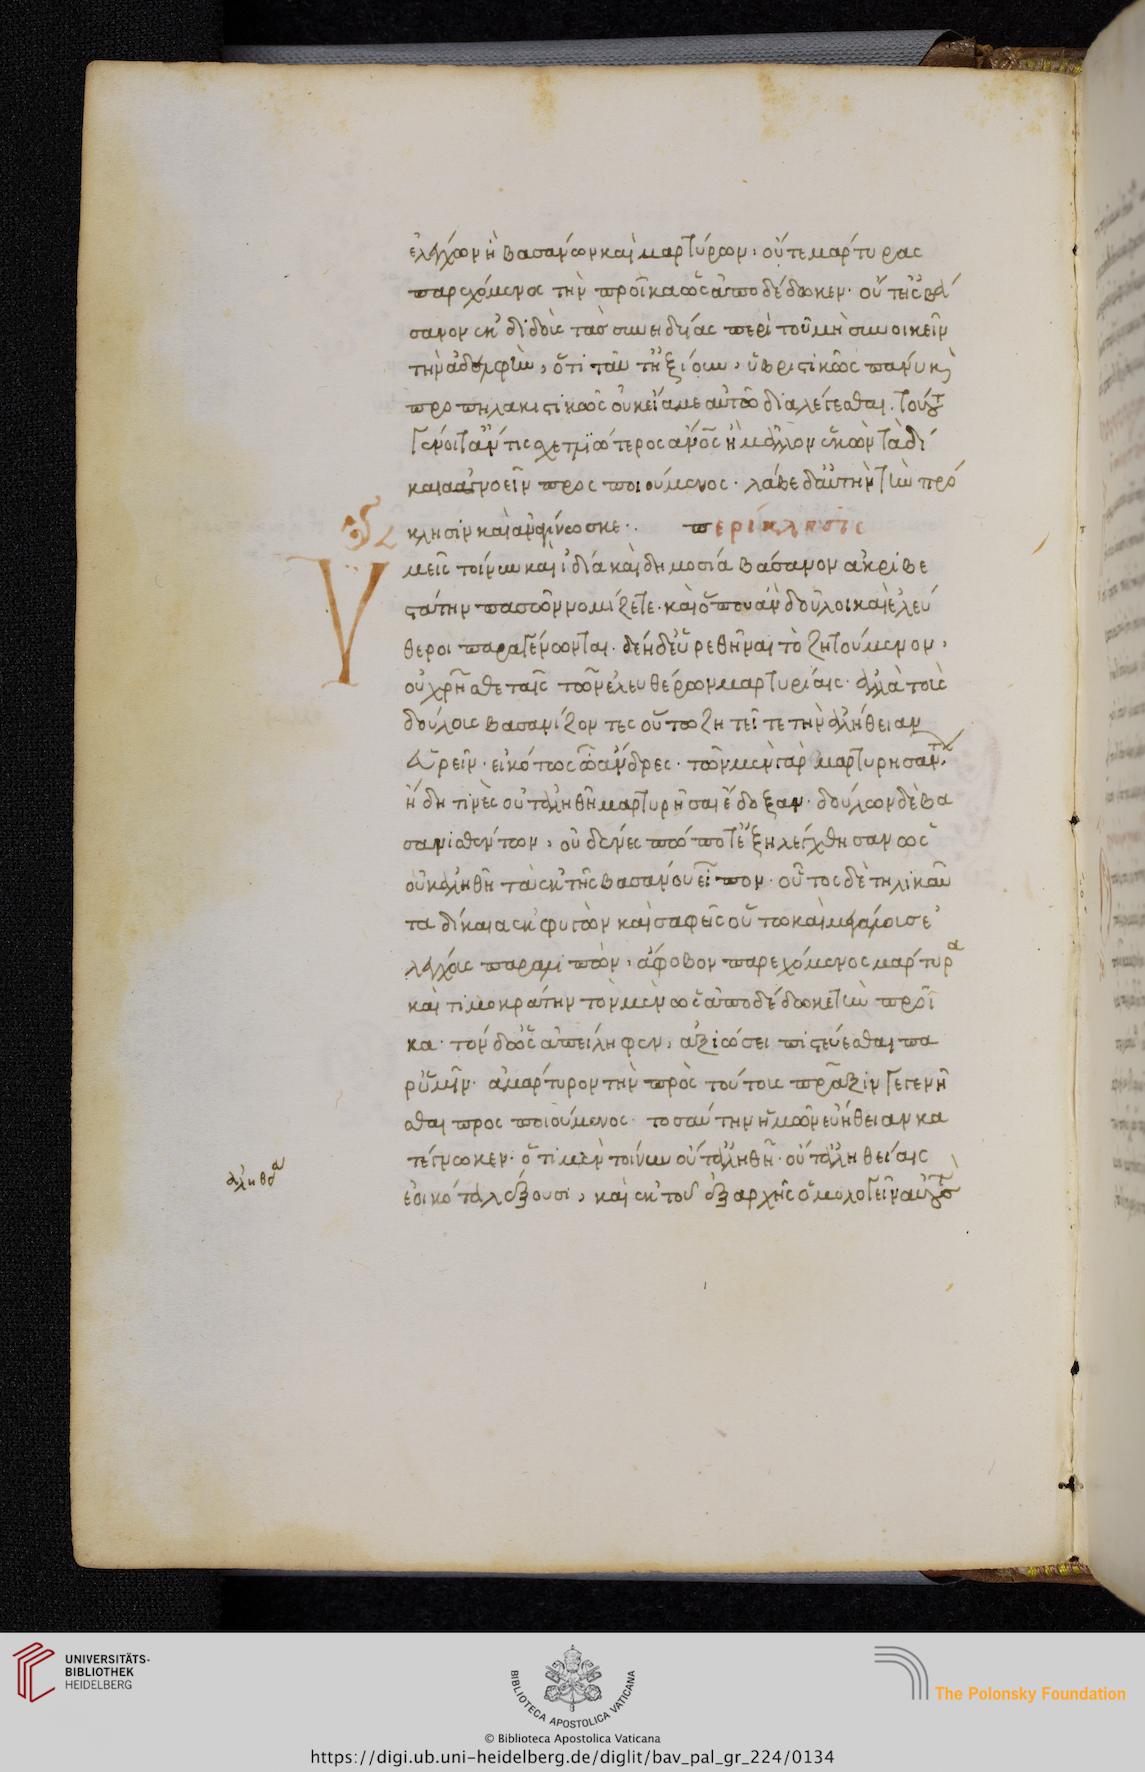 ἐλέγχων ἢ βασάνων καὶ μαρτύρων, οὔτε μάρτυρας
παρεχόμενος τὴν προῖκα ὡς ἀποδέδωκεν. οὔτ' ἐκ βα
σάνον ἐκδιδοὺς τὰς συνειδυίας περὶ τοῦ μὴ συνοικεῖν
τὴν ἀδελφὴν, ὅτι ταῦτ' ἠξίουν, ὑβριστικῶς πάνυ κὶ
προπηλακιστικῶς οὐκ εἴα με αὐτῶ διαλέγεσθαι. τούτου
γένοιτ' ἄν τις σχετλιώτερος ἄνος ἢ μᾶλλον ἑκὼν τὰ δί
καια ἀγνοεῖν προσποιούμενος. λάβε δ' αὐτὴν τὴν πρό
κλησιν καὶ ἀναγίνωσκε. περίκλησις
Ὑμεῖς τοίνυν καὶ ἰδία καὶ δημοσία βάσανον ἀκριβε
στάτην πασῶν νομίζετε. καὶ ὅπου ἂν δοῦλοι καὶ ἐλεύ
θεροι παραγένωνται. δέη δ' εὑρεθῆναι τὸ ζητούμενον,
οὐ χρῆσθε ταῖς τῶν ἐλευθέρων μαρτυρίαις. ἀλλὰ τοὺς
δούλους βασανίζοντες οὕτω ζητεῖτε τὴν ἀλήθειαν
εὑρεῖν. εἰκότως ὦ ἄνδρες. τῶν μὲν γὰρ μαρτυρησάντων
ἤδη τινὲς οὐ τἀληθῆ μαρτυρῆσαι ἔδοξαν. δούλων δὲ βα
σανισθέντων, οὐδένες πώποτ' ἐξηλέγχθησαν ὡς
οὐκ ἀληθῆ τὰ ἐκ τῆς βασάνου εἶπον. οὗτος δὲ τηλικαῦ
τα δίκαια ἐκφυγὼν καὶ σαφεῖς οὕτω καὶ μεγάλους ἐ
λέγχους παραλιπὼν, ἄφοβον παρεχόμενος μάρτυρα
καὶ τιμοκράτην τὸν μὲν ὡς ἀποδέδωκε τὴν προῖ
κα. τὸν δ' ὡς ἀπείληφεν, ἀξιώσει πιστεύεσθαι πα
ρ' ὑμῖν. ἀμάρτυρον τὴν πρὸς τούτους πρᾶξιν γεγενῆ
σθαι προσποιούμενος. τοσαύτην ὑμῶν εὐήθειαν κα
τέγνωκεν. ὅτι μὲν τοίνυν οὔτ' ἀληθῆ. οὔτ' ἀληθείαις
ἐοικότα λέξουσι, καὶ ἐκ τοῦ ἐξ αρχῆς ὁμολογεῖν αὐτοὺς
ἀληθεία
UNIVERSITÄTS-
BIBLIOTHEK
HEIDELBERG
BIBLIOTECA APOSTOLICA VATICANA
© Biblioteca Apostolica Vaticana
The Polonsky Foundation
https://digi.ub.uni-heidelberg.de/diglit/bav_pal_gr_224/0134